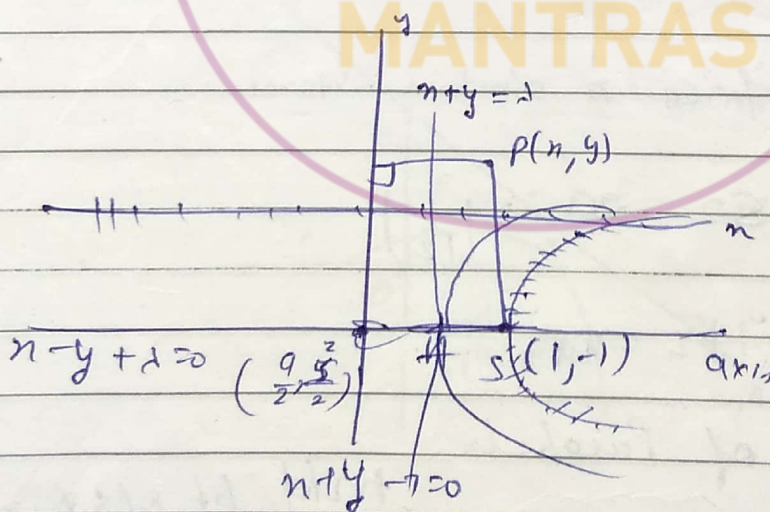 MANTRAS
y
x+y=λ
P(x,y)
x
x-y+λ=0
S(1,-1)
axis
x+y-7=0